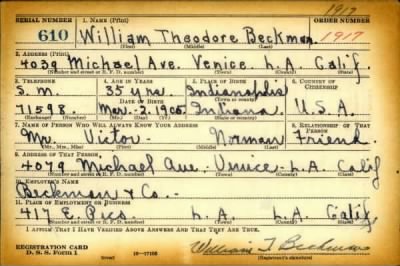 1917
SERIAL NUMBER 1. NAME (Print) ORDER NUMBER
610 William Theodore Beckman 1917
(First) (Middle) (Last)
2. ADDRESS (Print)
4039 Michael Ave. Venice. L.A Calif.
(Number and street or R. F. D. number) (Town) (County) (State)
3. TELEPHONE 4. AGE IN YEARS 5. PLACE OF BIRTH 6. COUNTRY OF CITIZENSHIP
S.M. 35 yrs. Indianapolis
DATE OF BIRTH (Town or county)
71598. Mar.-2, 1905 Indiana. U.S.A.
(Exchange) (Number) (Mo.) (Day) (Yr.) (State or country)
7. NAME OF PERSON WHO WILL ALWAYS KNOW YOUR ADDRESS 8. RELATIONSHIP OF THAT PERSON
Mr. Victor - Norman Friend.
(Mr., Mrs., Miss) (First) (Middle) (Last)
9. ADDRESS OF THAT PERSON
4079 Michael Ave. - Venice - L.A. Calif
(Number and street or R. F. D. number) (Town) (County) (State)
10. EMPLOYER'S NAME
Beckman & Co. -
11. PLACE OF EMPLOYMENT OR BUSINESS
417 E. Pico. L.A. L.A. Calif.
(Number and street or R. F. D. number) (Town) (County) (State)
I AFFIRM THAT I HAVE VERIFIED ABOVE ANSWERS AND THAT THEY ARE TRUE.
REGISTRATION CARD
D. S. S. FORM 1 16-17105 William T. Beckman
(Registrant's signature)